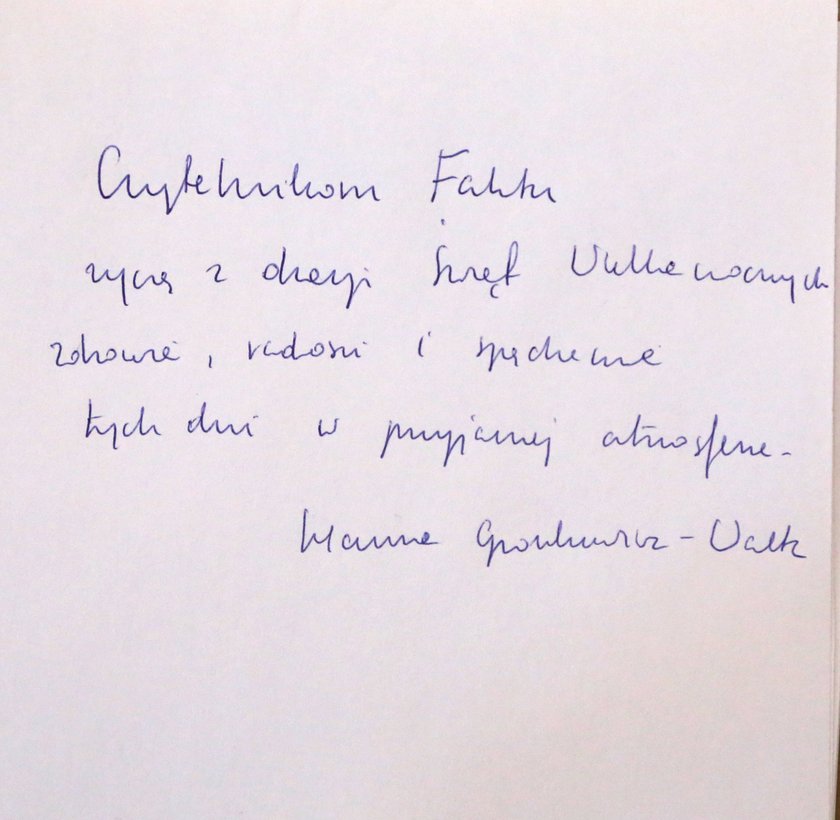 Czytelnikom Faktu
życzę z okazji Świąt Wielkanocnych
zdrowia, radości i spędzenia
tych dni w przyjaznej atmosferze.
Hanna Gronkiewicz-Waltz